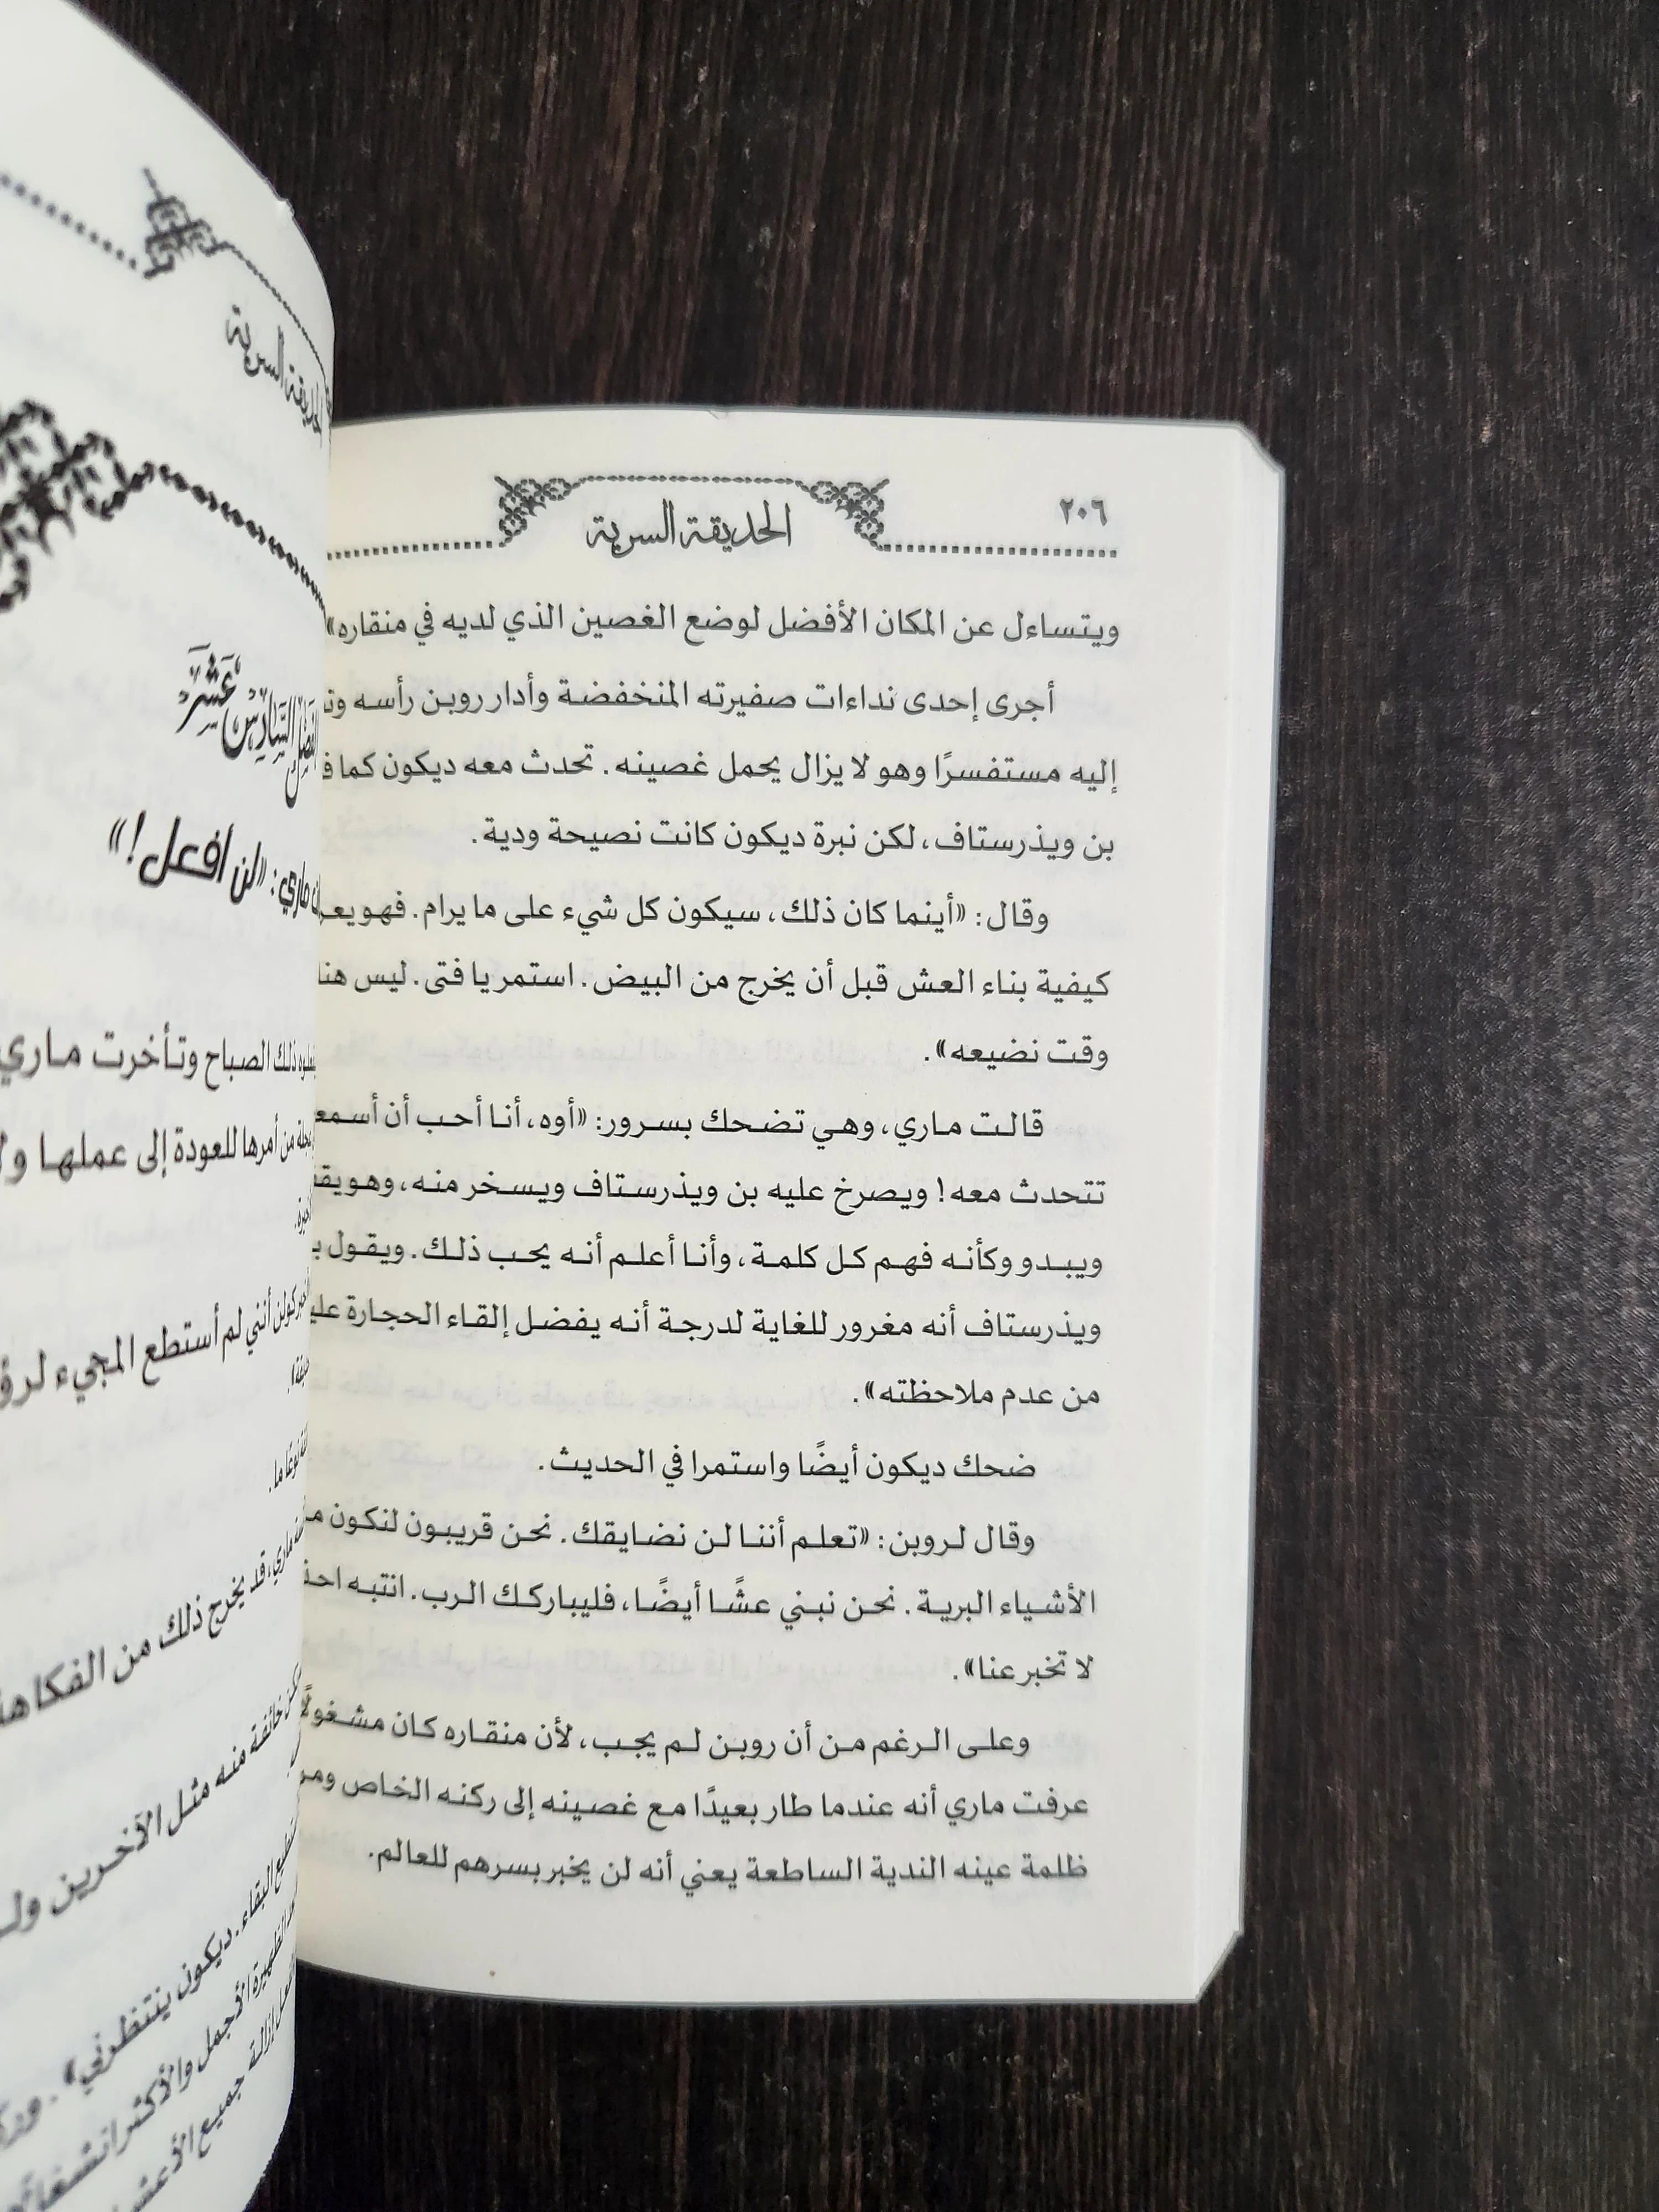 ٢٠٦
الحديقة السرية
ويتساءل عن المكان الأفضل لوضع الغصين الذي لديه في منقاره»
أجرى إحدى نداءات صفيرته المنخفضة وأدار روبن رأسه
إليه مستفسرًا وهو لا يزال يحمل غصينه. تحدث معه ديكون كما
بن ويذرستاف، لكن نبرة ديكون كانت نصيحة ودية.
وقال: «أينما كان ذلك، سيكون كل شيء على ما يرام. فهو
كيفية بناء العش قبل أن يخرج من البيض. استمر يا فتى. ليس
وقت نضيعه».
قالت ماري، وهي تضحك بسرور: «أوه، أنا أحب أن
تتحدث معه! ويصرخ عليه بن ويذرستاف ويسخر منه، وهو
ويبدو وكأنه فهم كل كلمة، وأنا أعلم أنه يحب ذلك. ويقول
ويذرستاف أنه مغرور للغاية لدرجة أنه يفضل إلقاء الحجارة
من عدم ملاحظته».
ضحك ديكون أيضًا واستمرا في الحديث.
وقال لروبن: «تعلم أننا لن نضايقك. نحن قريبون لنكون
الأشياء البرية. نحن نبني عشًا أيضًا، فليباركك الرب. انتبه
لا تخبر عنا».
وعلى الرغم من أن روبن لم يجب، لأن منقاره كان مشغولًا
عرفت ماري أنه عندما طار بعيدًا مع غصينه إلى ركنه الخاص
ظلمة عينه الندية الساطعة يعني أنه لن يخبر بسرهم للعالم.
الحديقة السرية
السَّادِسَ عَشَرَ
ماري: «لن افعل!»
ذلك الصباح وتأخرت ماري
من أمرها للعودة إلى عملها
كولن أنني لم أستطع المجيء
ماري، قد يخرج ذلك من
خائفة منه مثل الآخرين
البقاء. ديكون ينتظرني».
الأجمل والأكثر
إزالة جميع